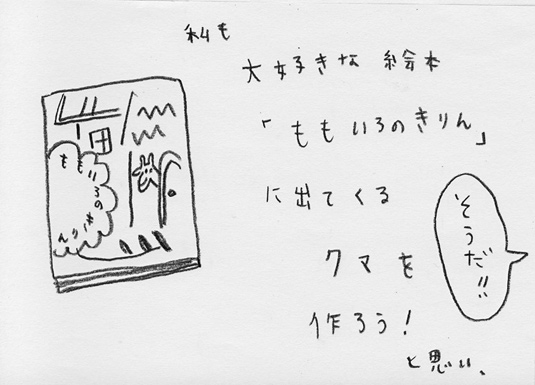 私も
大好きな絵本
「ももいろのきりん」
に出てくる
クマを
作ろう!
と思い、
そうだ!!
ももいろの
きりん